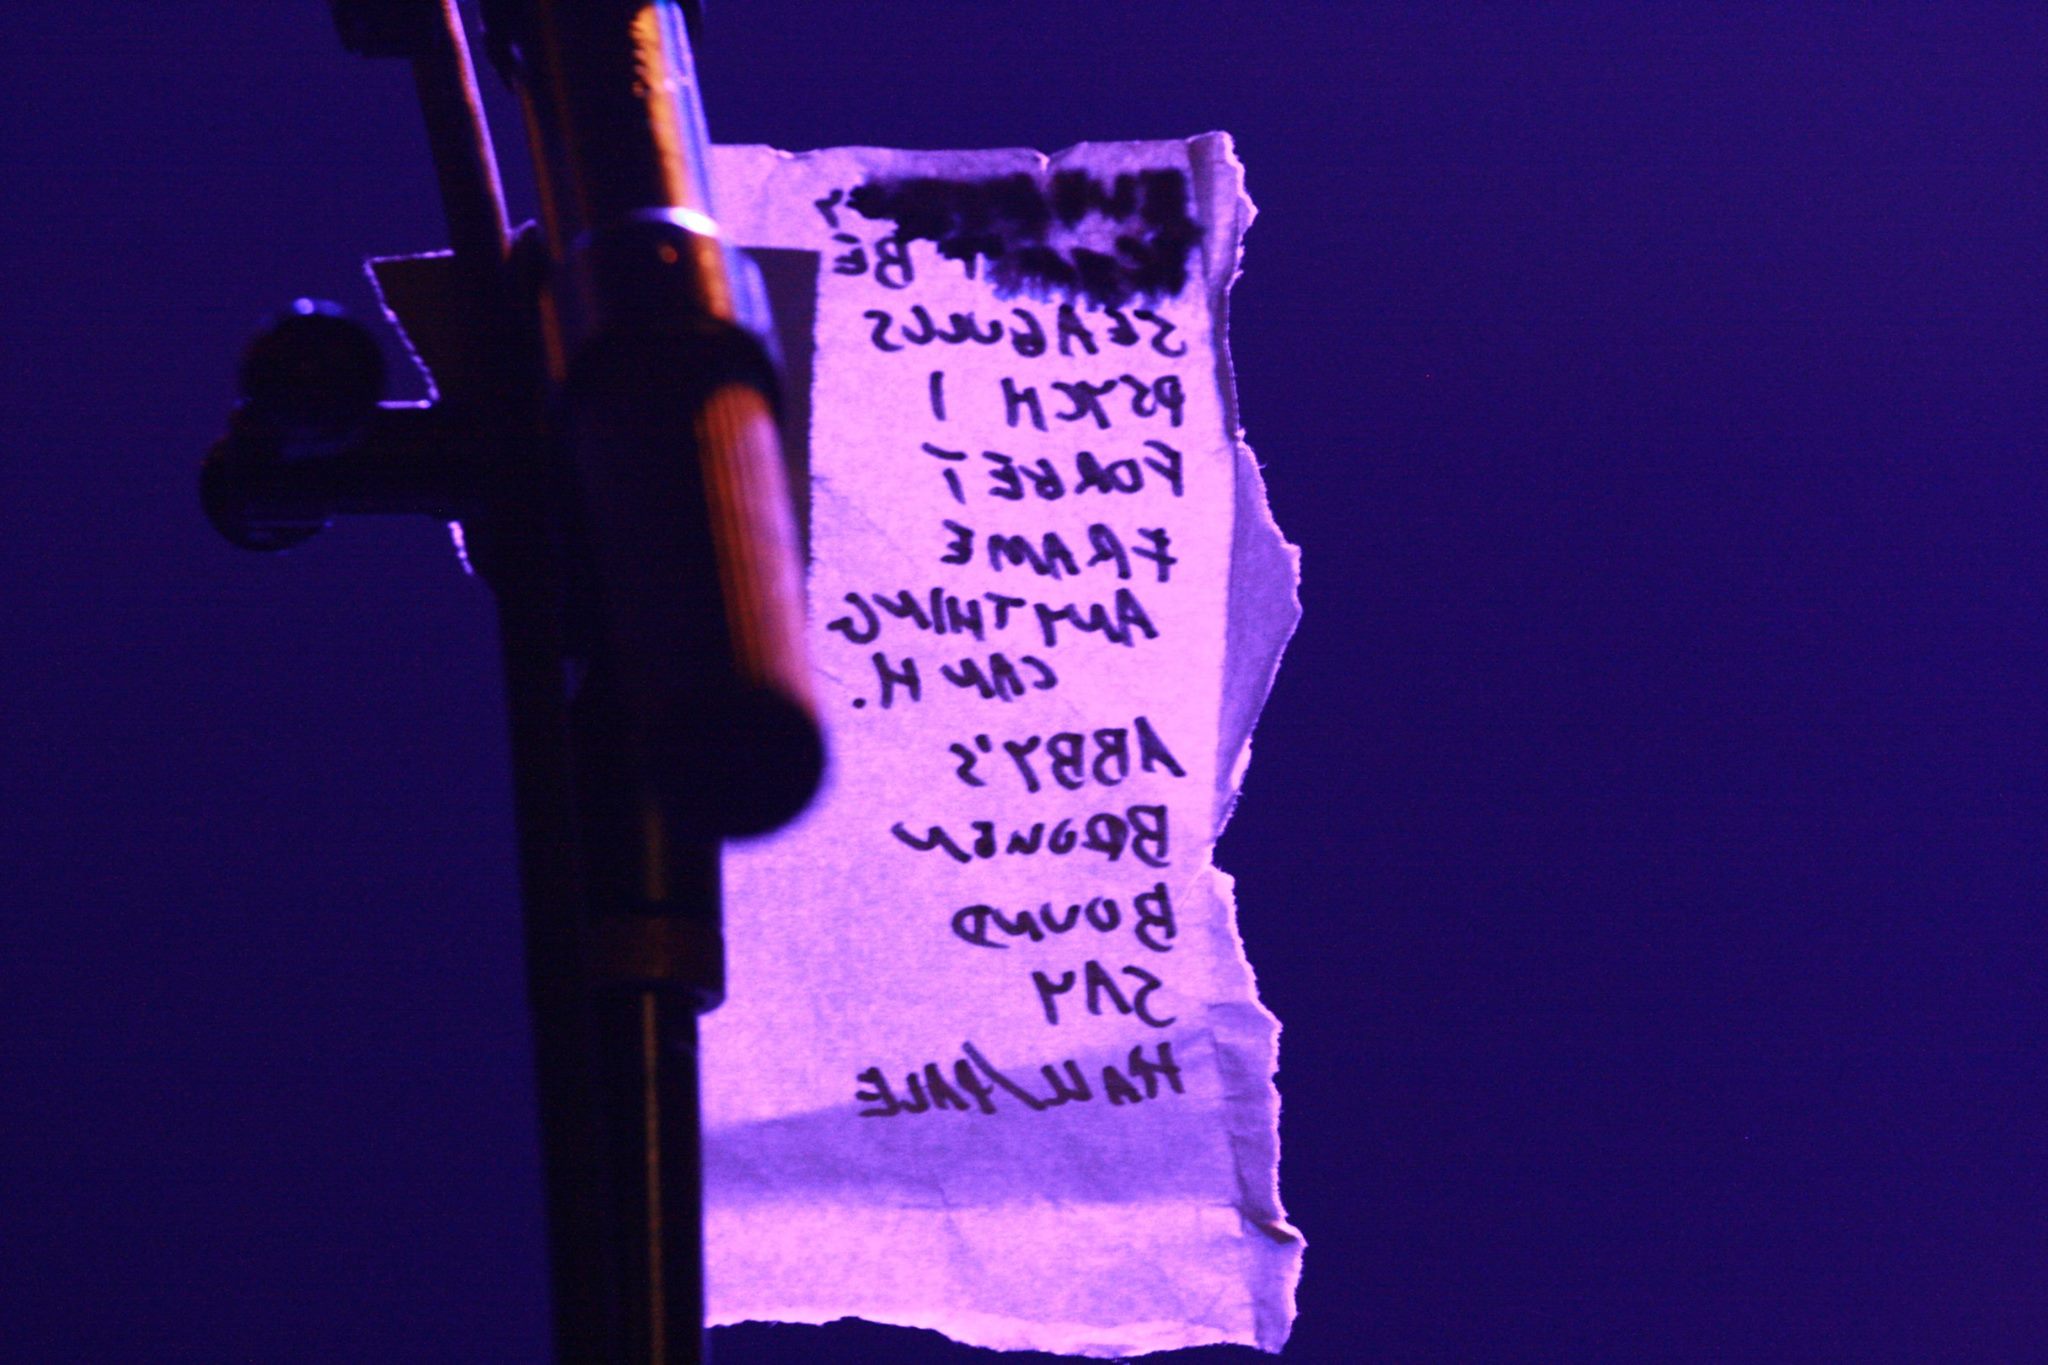 BE
SEAGULLS
PSYCH 1
FORGET
FRAME
ANYTHING
CAN H.
ABBY'S
BROKEN
BOUND
SAY
HALL/PALE